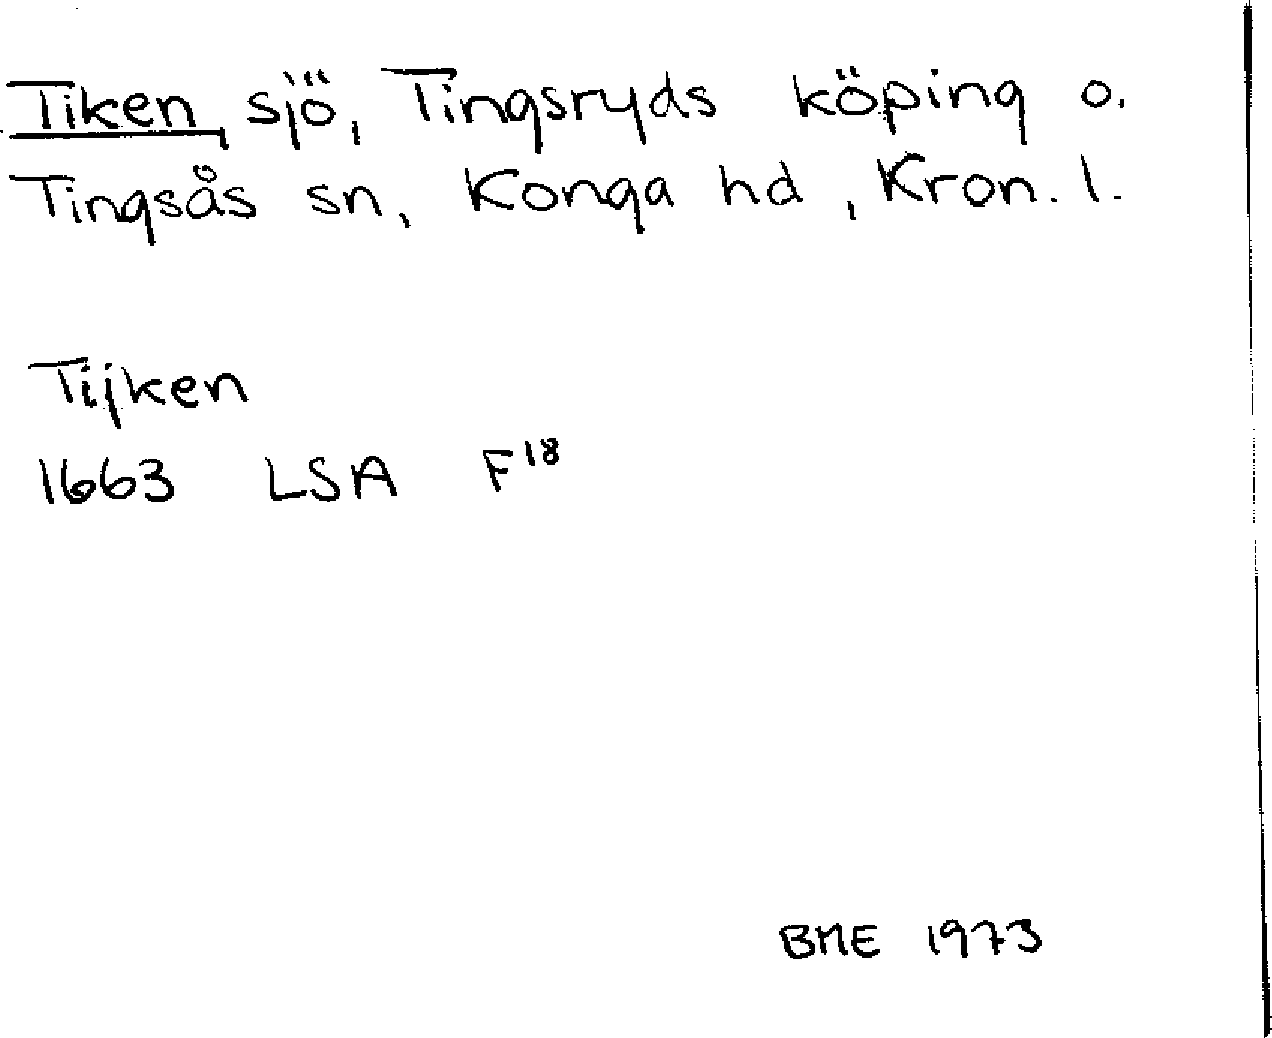 Tiken, sjö, Tingsryds köping o.
Tingsås sn, Konga hd, Kron. l.
Tijken
1663 LSA F18
BME 1973